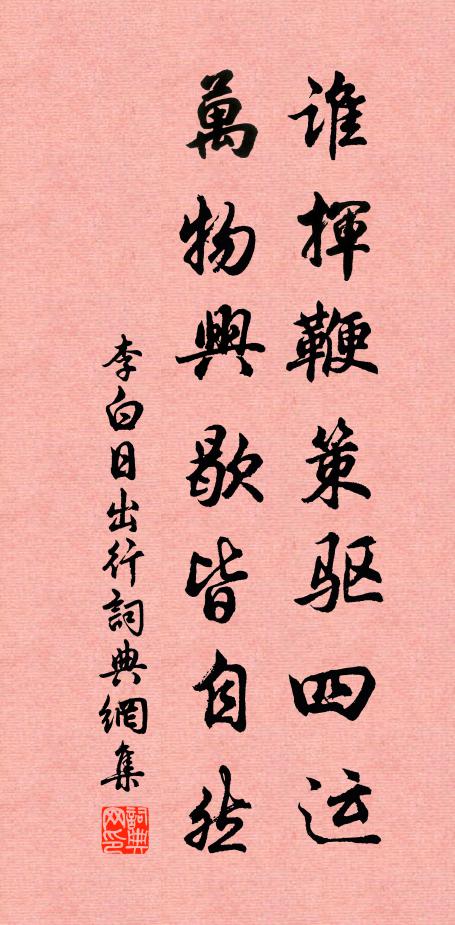 谁揮鞭策驱四运
萬物興歇皆自然
李白日出行詞典網集
詞典网印